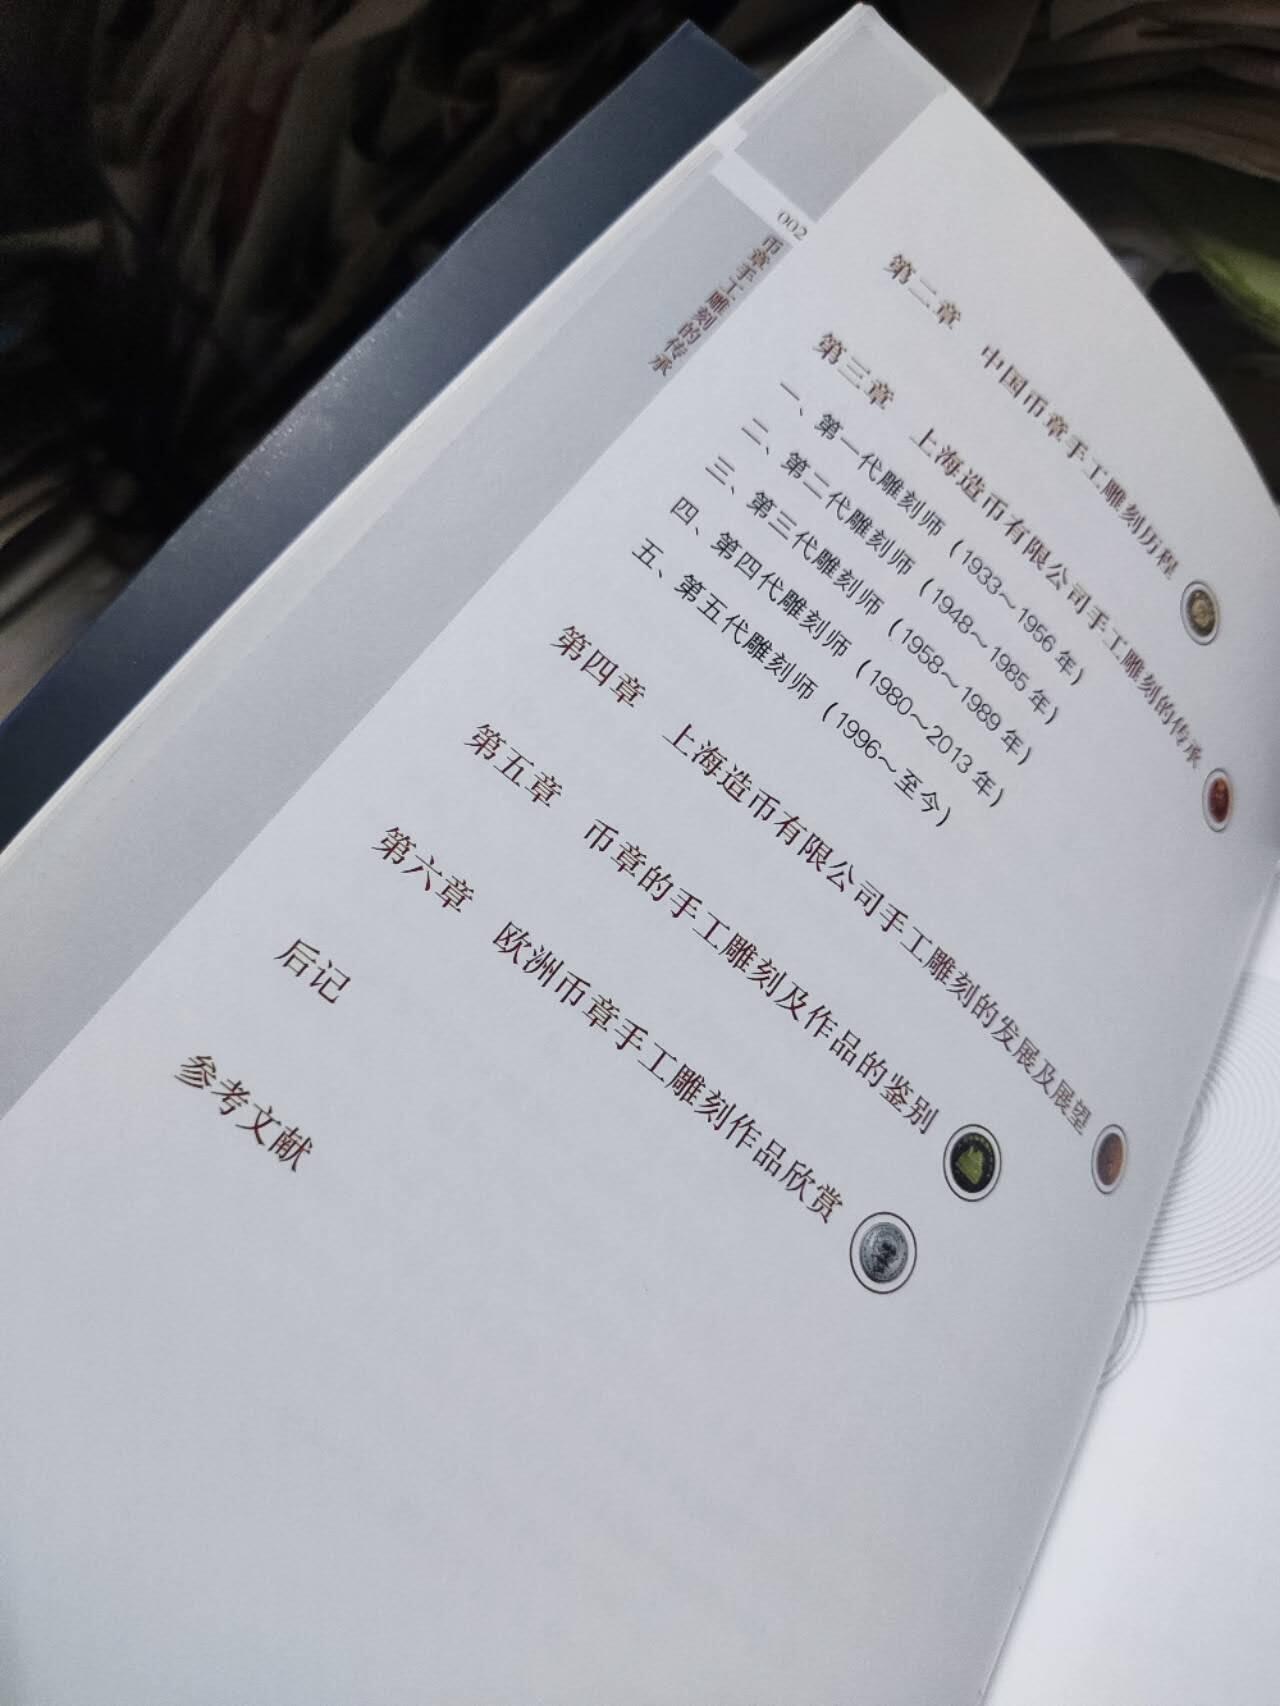 002
币章手工雕刻的传承
第二章 中国币章手工雕刻历程
第三章 上海造币有限公司手工雕刻的传承
一、第一代雕刻师（1933～1956年）
二、第二代雕刻师（1948～1985年）
三、第三代雕刻师（1958～1989年）
四、第四代雕刻师（1980～2013年）
五、第五代雕刻师（1996～至今）
第四章 上海造币有限公司手工雕刻的发展及展望
第五章 币章的手工雕刻及作品的鉴别
第六章 欧洲币章手工雕刻作品欣赏
后记
参考文献